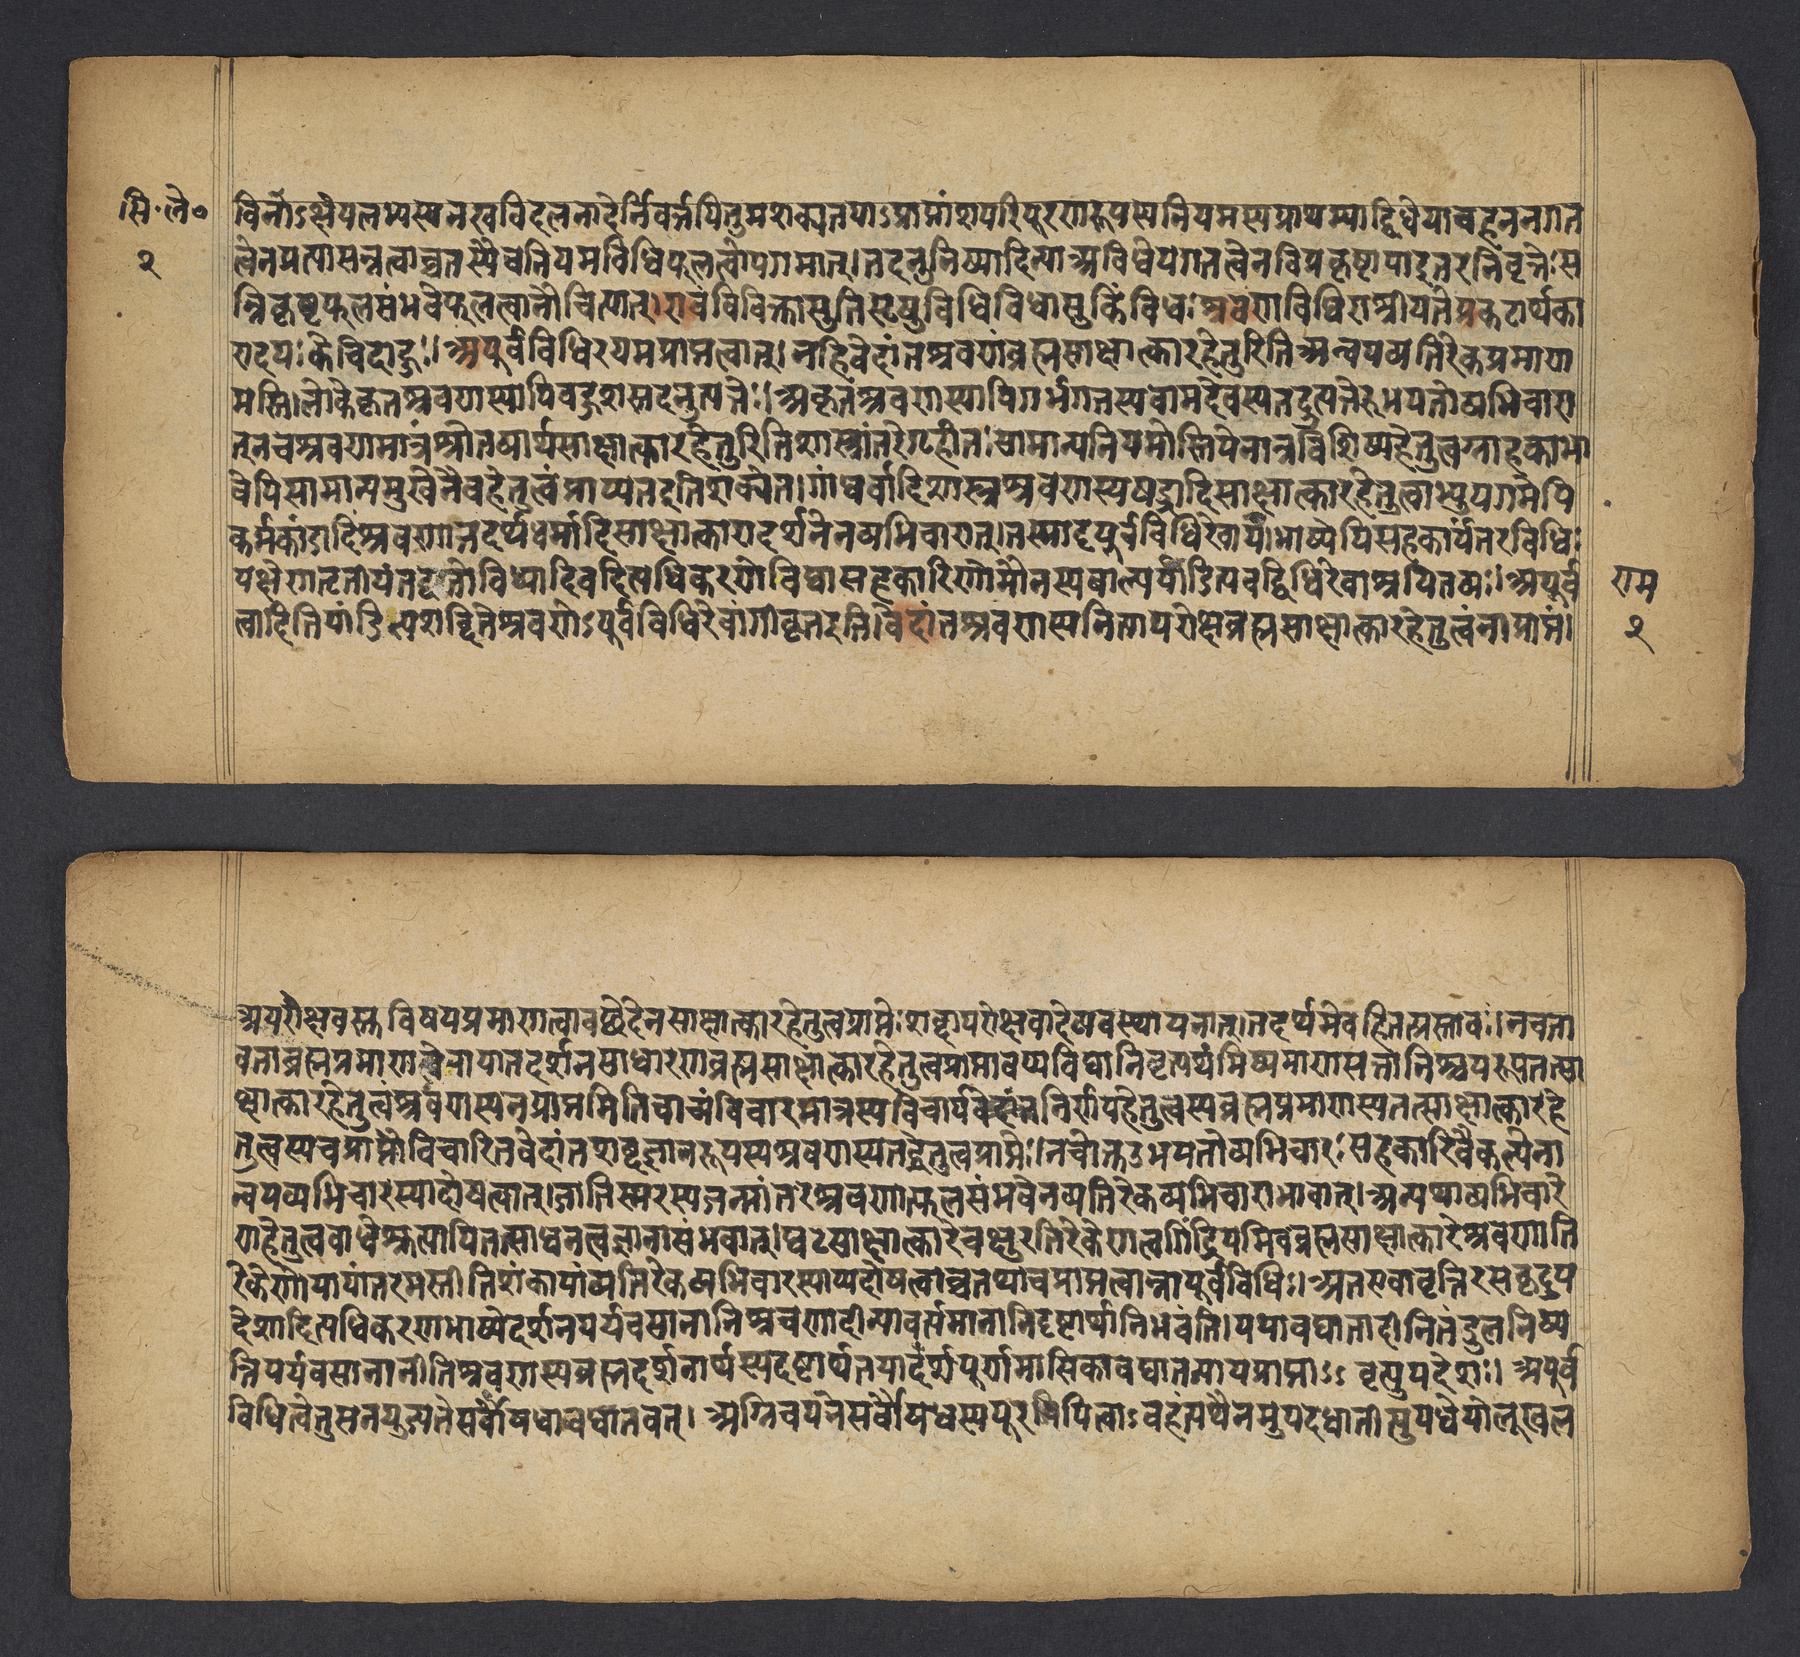 सि॰ ले॰
२
विनाऽक्षेपलभ्यस्य नखविदलनादेर्निवर्त्तयितुमशक्यतया ऽप्राप्तांशपरिपूरणरूपस्य नियमस्य प्राथम्याद्विधेयावहननगत
त्वेन प्रत्यासन्नत्वाच्च तस्यैव नियमविधिफलत्वोपगमात्। तदनुनिष्पादिन्या अविधेयगतत्वेन विप्रकृष्टाया इतरनिवृत्तेः स
न्निकृष्टफलसंभवे फलत्वानौचित्यात्। एवं विविक्तासु तिसृषु विधिविधासु किंविधः श्रवणविधिराश्रीयते प्रकटार्थका
रादयः केचिदाहुः।। अपूर्वविधिरयमप्राप्तत्वात्। नहि वेदांतश्रवणं ब्रह्मसाक्षात्कारहेतुरिति अन्वयव्यतिरेकप्रमाण
मस्ति। लोके कृतश्रवणस्यापि बहुशस्तदनुत्पत्तेः।। अकृतश्रवणस्यापि गर्भगतस्य वामदेवस्य तदुत्पत्तेरुभयतो व्यभिचारा
त् न च श्रवणमात्रं श्रोतव्यार्थसाक्षात्कारहेतुरिति शास्त्रांतरे गृहीतः सामान्यनियमोस्ति येनात्र विशिष्य हेतुत्वग्राहकाभा
वेपि सामान्यमुखेनैव हेतुत्वं प्राप्यत इति शक्येत। गांधर्वादिशास्त्रश्रवणस्य षड्जादिसाक्षात्कारहेतुत्वाभ्युपगमेपि
कर्मकांडादिश्रवणात्तदर्थधर्मादिसाक्षात्कारादर्शनेन व्यभिचारात्। तस्मादपूर्वविधिरेवायं। भाष्येपि सहकार्यंतरविधिः
पक्षेण तृतीयं तद्वतो विध्यादिवदित्यधिकरणे विद्यासहकारिणो मौनस्य बाल्यपांडित्यवद्विधिरेवाश्रयितव्यः।। अपूर्व
त्वादिति पांडित्यशब्दिते श्रवणेऽपूर्वविधिरेवांगीकृत इति। वेदांतश्रवणस्य नित्यापरोक्षब्रह्मसाक्षात्कारहेतुत्वं नाप्राप्तं।
राम
२
अपरोक्षवस्तुविषयप्रमाणत्वावच्छेदेन साक्षात्कारहेतुत्वप्राप्तेः शाब्दापरोक्षवादे व्यवस्थापनात्। तदर्थमेव हि तत्प्रस्तावः।। न च ता
वता ब्रह्मप्रमाणत्वेनापातदर्शनसाधारणब्रह्मसाक्षात्कारहेतुत्वप्राप्तावप्यविद्यानिवृत्यर्थमिष्यमाणसत्तानिश्चयरूपतत्सा
क्षात्कारहेतुत्वं श्रवणस्य न प्राप्तमिति वाच्यं विचारमात्रस्य विचार्यनिर्णयहेतुत्वस्य ब्रह्मप्रमाणस्य तत्साक्षात्कारहे
तुत्वस्य च प्राप्तौ विचारितवेदांतशब्दज्ञानरूपस्य श्रवणस्य तद्धेतुत्वप्राप्तेः। न चोक्त उभयतो व्यभिचारः सहकारिवैकल्येना
न्वयव्यभिचारस्यादोषत्वात्। जातिस्मरस्य जन्मांतरश्रवणात्फलसंभवेन व्यतिरेकव्यभिचाराभावात्। अन्यथा व्यभिचारे
ण हेतुत्वबाधे श्रुत्यापि तत्साधनत्वज्ञानासंभवात्। घटसाक्षात्कारे चक्षुरतिरेकेण त्वगिंद्रियमिव ब्रह्मसाक्षात्कारे श्रवणाति
रेकेणोपायांतरमस्तीति शंकायां व्यतिरेकव्यभिचारस्याप्यदोषत्वाच्च तथा च प्राप्तत्वान्नापूर्वविधिः। अत एवावृत्तिरसकृदुप
देशादित्यधिकरणभाष्ये दर्शनपर्यवसानानि श्रवणादीन्यावर्त्यमानानि दृष्टार्थानि भवंति। यथावघातादीनि तंदुलनिष्प
त्तिपर्यवसानानीति श्रवणस्य ब्रह्मदर्शनार्थस्य दृष्टार्थतया दर्शपूर्णमासिकावघातन्यायप्राप्ताऽऽ वृत्त्युपदेशः। अपूर्व
विधित्वे तु स न युज्यते सर्वौषधावघातवत्। अग्निचयने सर्वौषधस्य पूरयित्वाऽवहंत्यथैनमुपदधातीत्युपधेयोलूखल